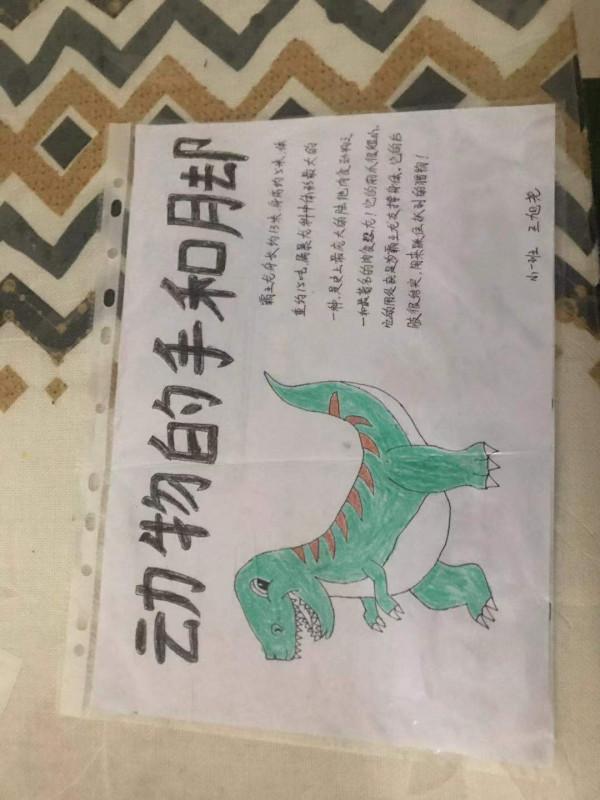 动物的手和脚
霸王龙身长约13米,身高约5米,体
重约15吨,属暴龙科中体形最大的
一种,是史上最庞大的陆地肉食动物之
一和最著名的肉食恐龙!它的前爪很短小,
它的用处就是为霸王龙支撑身体,它的后
肢很结实,用来跳压扒刮的猎物!
小一班 王旭尧